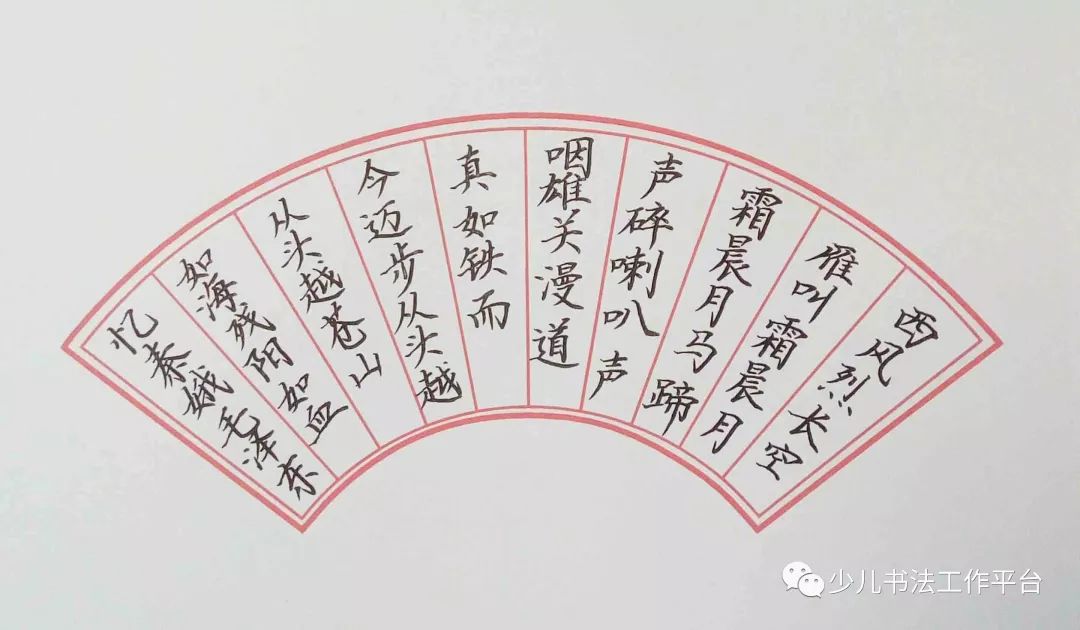 西风烈长空
雁叫霜晨月
霜晨月马蹄
声碎喇叭声
咽雄关漫道
真如铁而
今迈步从头越
从头越苍山
如海残阳如血
忆秦娥毛泽东
少儿书法工作平台